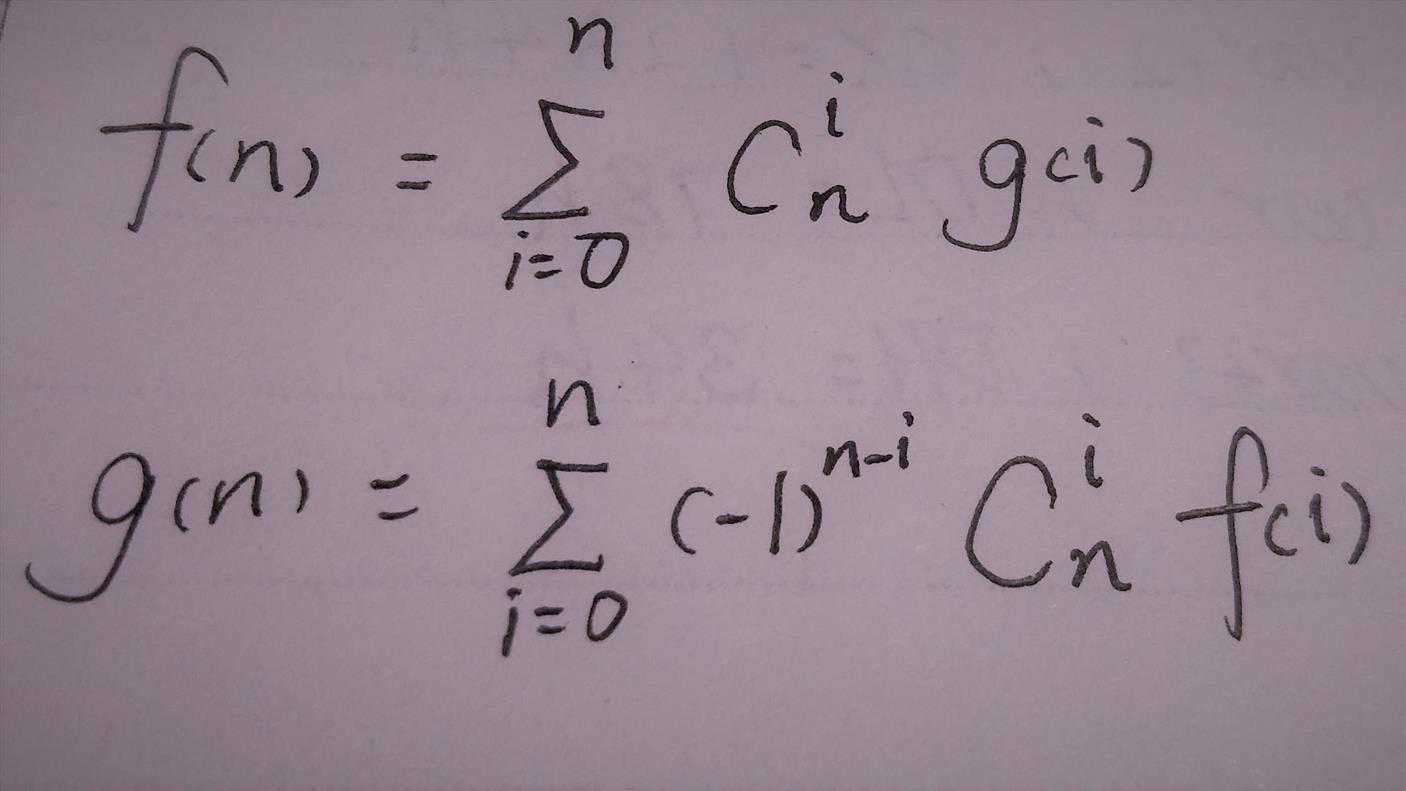 f(n) = \sum_{i=0}^{n} C_n^i g(i)
g(n) = \sum_{i=0}^{n} (-1)^{n-i} C_n^i f(i)